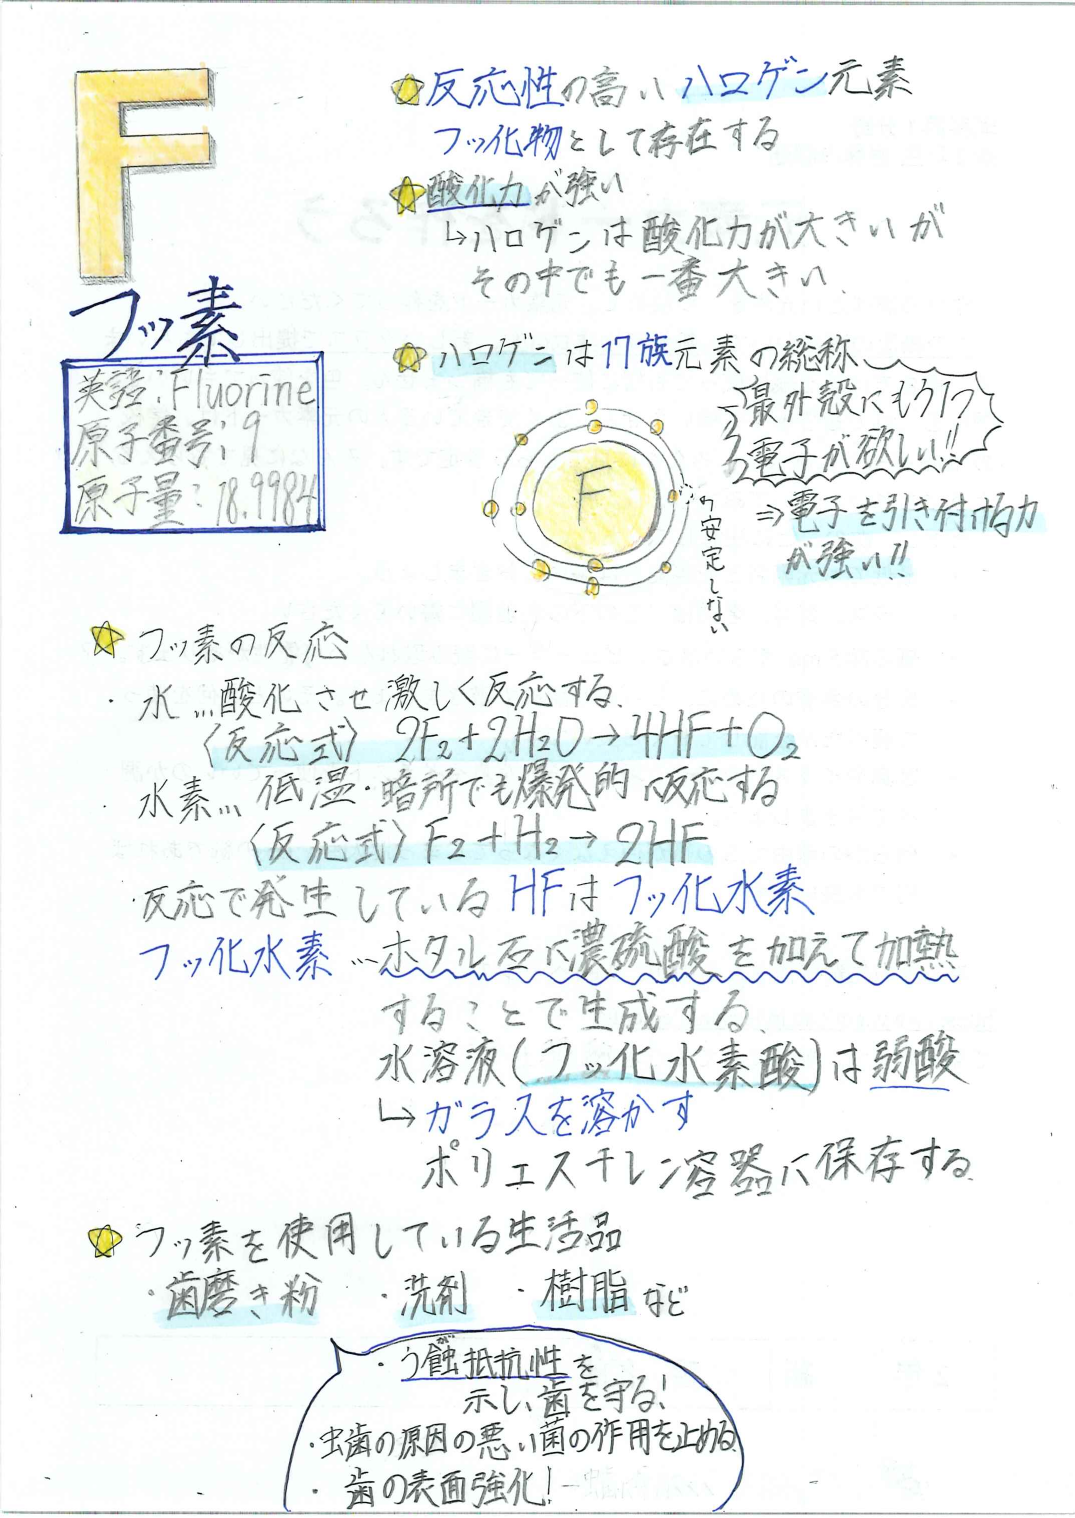 F
フッ素
英語:Fluorine
原子番号:9
原子量:18.9984
反応性の高いハロゲン元素
フッ化物として存在する
酸化力が強い
↳ハロゲンは酸化力が大きいが
その中でも一番大きい
ハロゲンは17族元素の総称
最外殻にもう1つ
電子が欲しい!!
F
安定しない
⇒電子を引き付ける力
が強い!!
フッ素の反応
・水…酸化させ激しく反応する.
〈反応式〉 2F₂+2H₂O→4HF+O₂
・水素… 低温・暗所でも爆発的に反応する
〈反応式〉F₂+H₂→2HF
・反応で発生しているHFはフッ化水素
フッ化水素…ホタル石に濃硫酸を加えて加熱
することで生成する.
水溶液(フッ化水素酸)は弱酸
↳ガラスを溶かす
ポリエスチレン容器に保存する.
フッ素を使用している生活品
・歯磨き粉 ・洗剤 ・樹脂など
・う蝕抵抗性を
示し、歯を守る!
・虫歯の原因の悪い菌の作用を止める
・歯の表面強化!